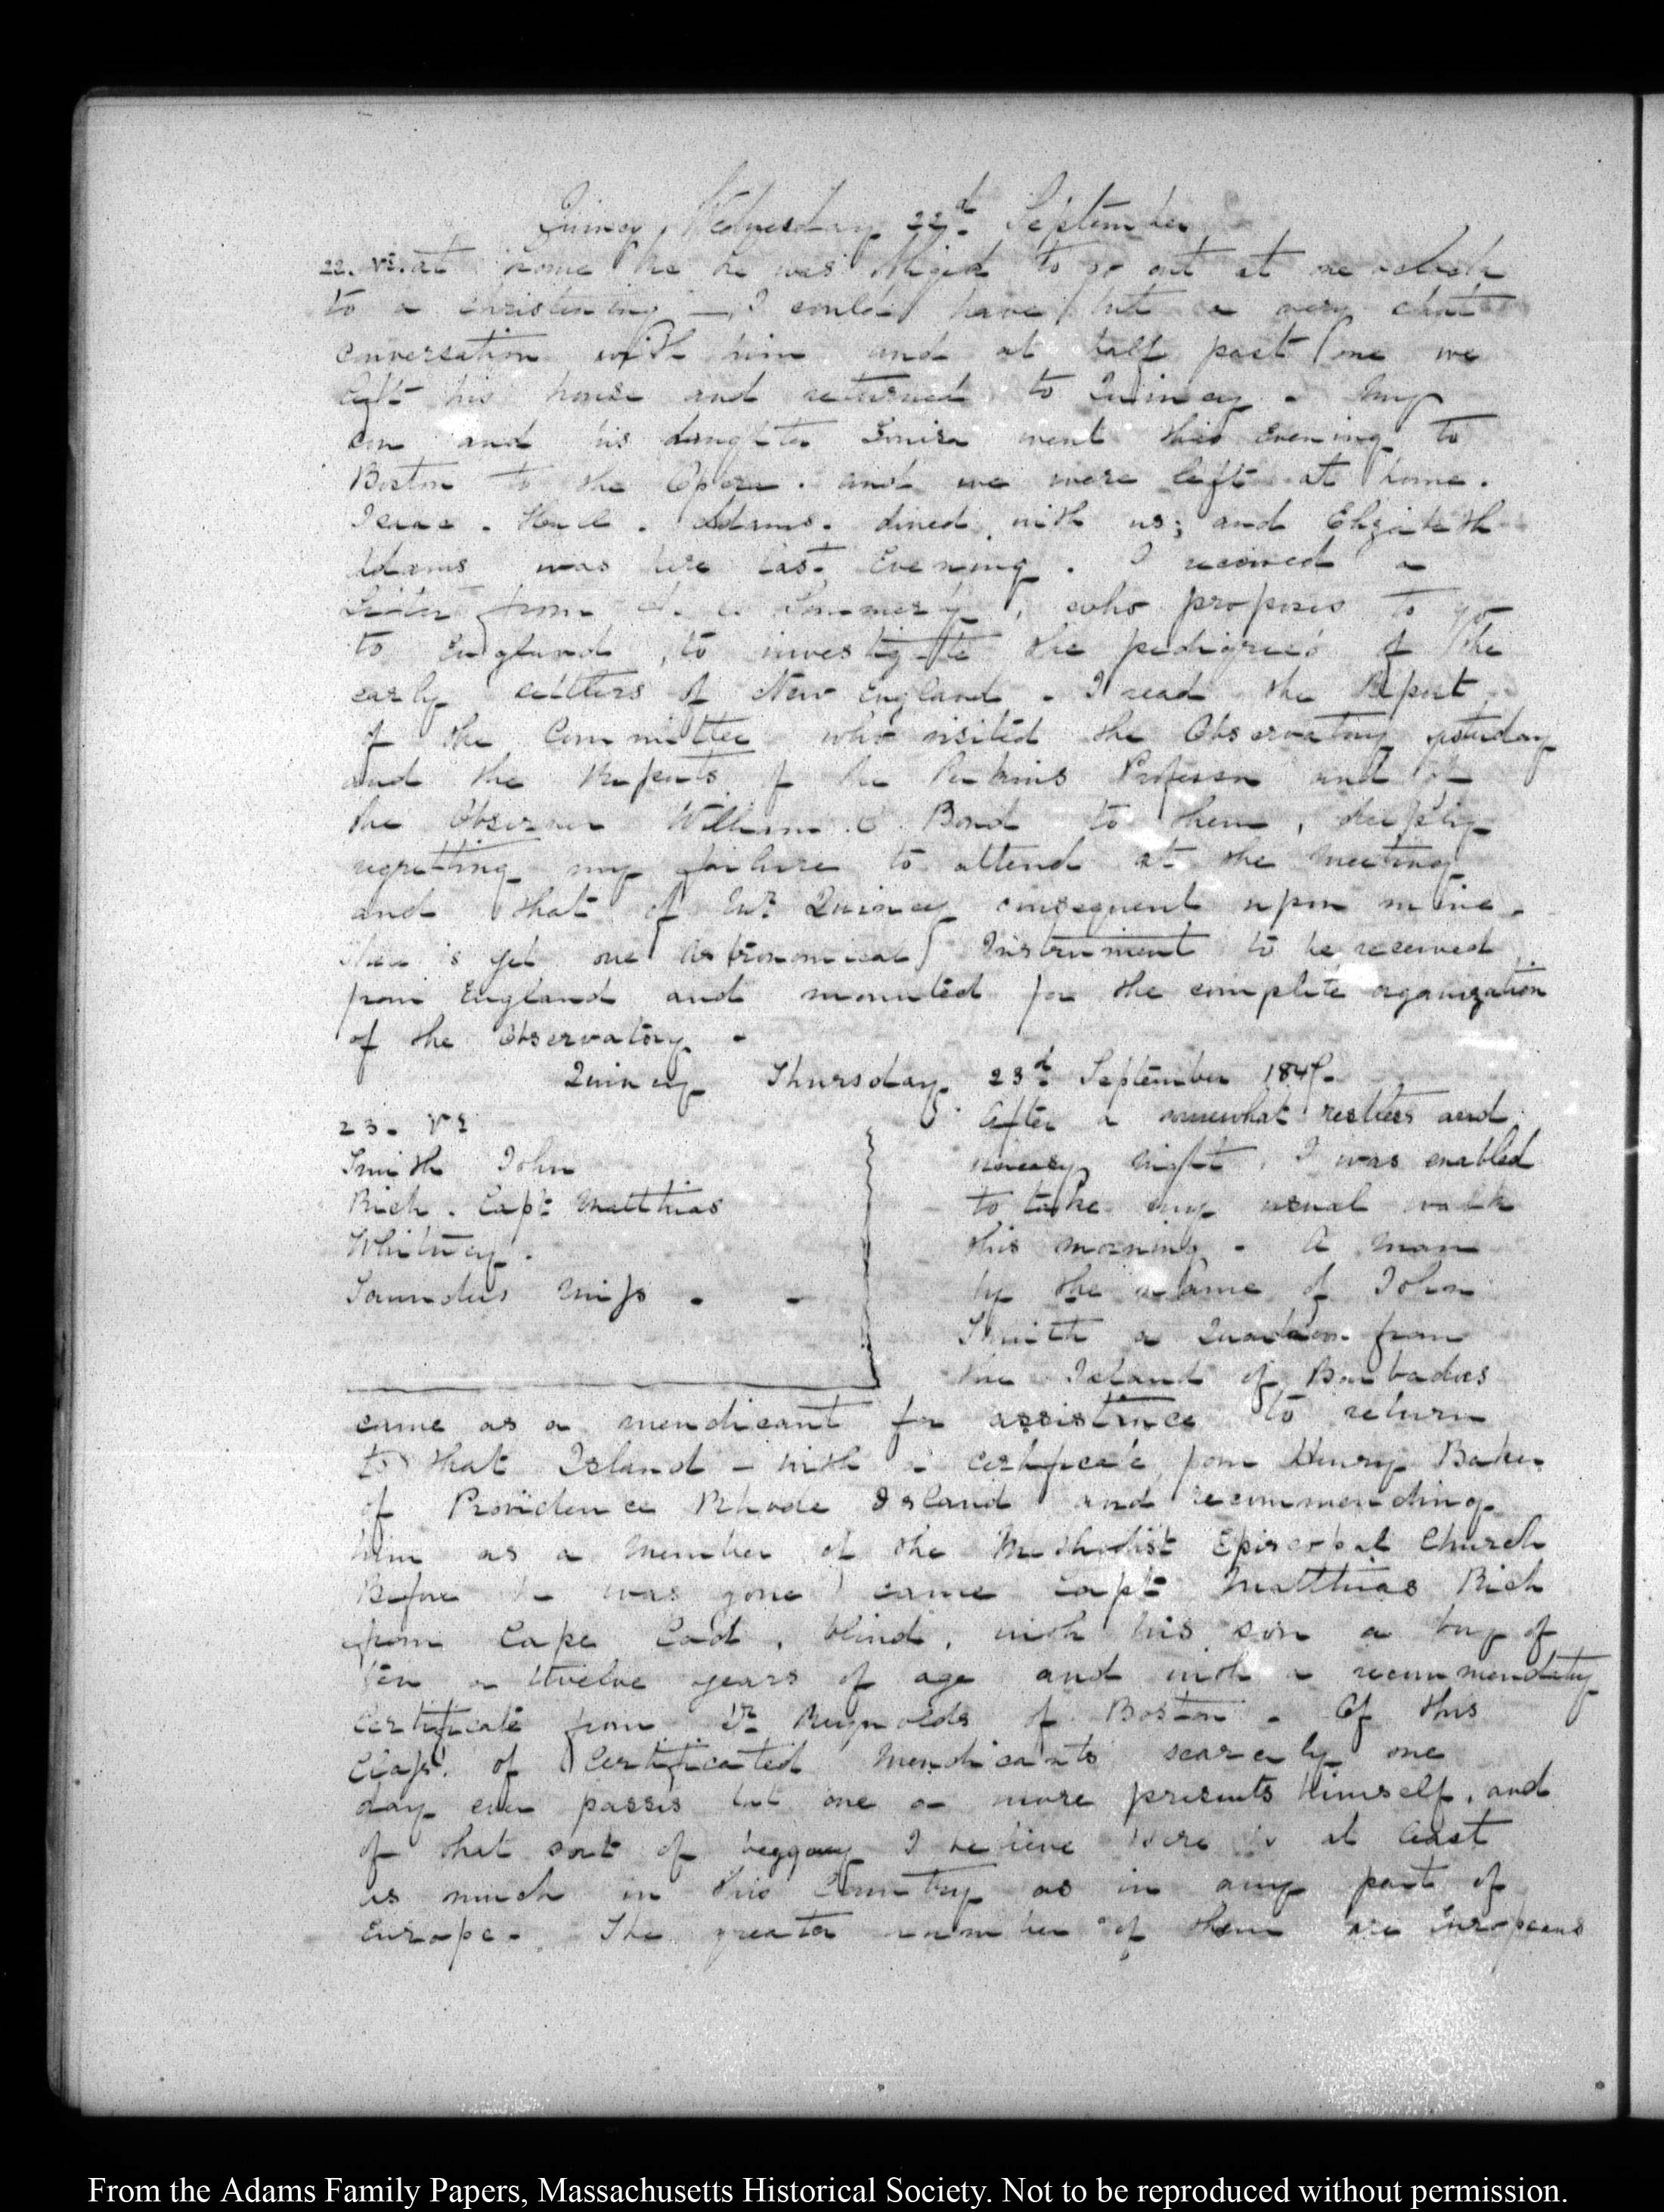 Quincy Wednesday 22d. September
22. VI. at home he was obliged to go out at one o'clock
to a christening — I could have but a very short
conversation with him and at half past one we
left his house and returned to Quincy - My
son and his daughter Louisa went this Evening to
Boston to the Opera. and we were left at home.
Isaac. Hull. Adams. dined with us; and Elizabeth
Adams was here last Evening. I received a
Letter from Somerby, who proposes to go
to England, to investigate the pedigrees of the
early settlers of New England - I read the Report
of the Committee who visited the Observatory yesterday
and the Reports of the Perkins Professor and of
the Observer William. C. Bond to them, deeply
regretting my failure to attend at the Meeting
and that of Mr. Quincy consequent upon mine -
There is yet one Astronomical Instrument to be received
from England and mounted for the complete organization
of the Observatory -
Quincy Thursday 23d. September 184
23. V
Smith John
Rich. Capt: Matthias
Whitney.
Saunders Miss - -
After a somewhat restless and
uneasy night, I was enabled
to take my usual walk
this morning - A man
by the name of John
Smith a Quadroon from
the Island of Barbadoes
came as a mendicant for assistance to return
to that Island - with a certificate from Henry Baker
of Providence Rhode Island and recommending
him as a Member of the Methodist Episcopal Church
Before he was gone came Capt: Matthias Rich
from Cape Cod, blind, with his son a boy of
ten or twelve years of age and with a recommendatory
Certificate from Dr. Reynolds of Boston - Of this
Class of Certificated Mendicants scarcely one
day ever passes but one or more presents himself, and
of that sort of beggary I believe there is at least
as much in this Country as in any part of
Europe - The greater number of them are Europeans
From the Adams Family Papers, Massachusetts Historical Society. Not to be reproduced without permission.